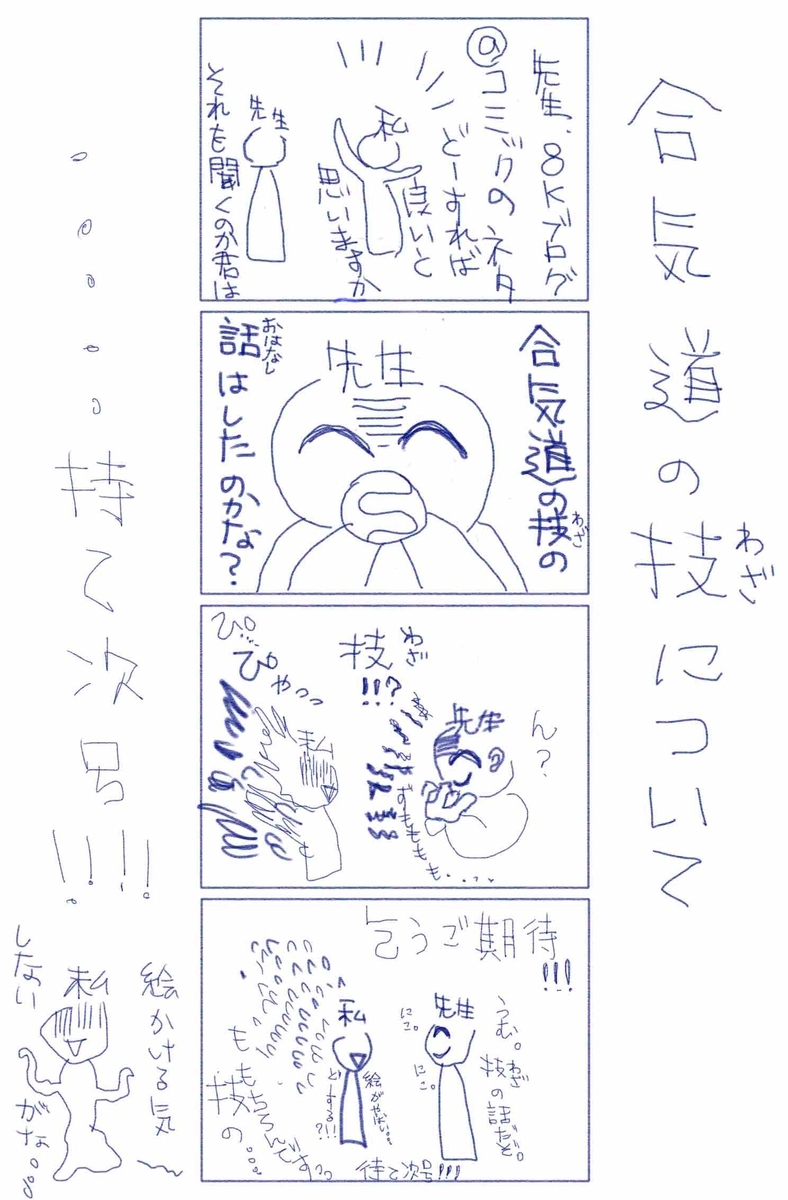 合気道の技について
わざ
先生、8Kブログ
@コミックのネタ
どーすれば
良いと
思いますか
私
先生
それを聞くのか君は
合気道の技の
わざ
先生
話はしたのかな?
おはなし
ん?
先生
ずももももも・・・
技
わざ
!!!?
私
ぴ…
ぴゃっっ
乞うご期待
!!!
うむ。
技の話だぞ。
わざ
先生
にこ。
にこ。
私
絵がやばい。。
どーする?!!!
ももちろんですっっ
技の。。。
待て次号!!!
。。。。。持て次号!!!!
絵かける気〜
私
しない
がな。。。